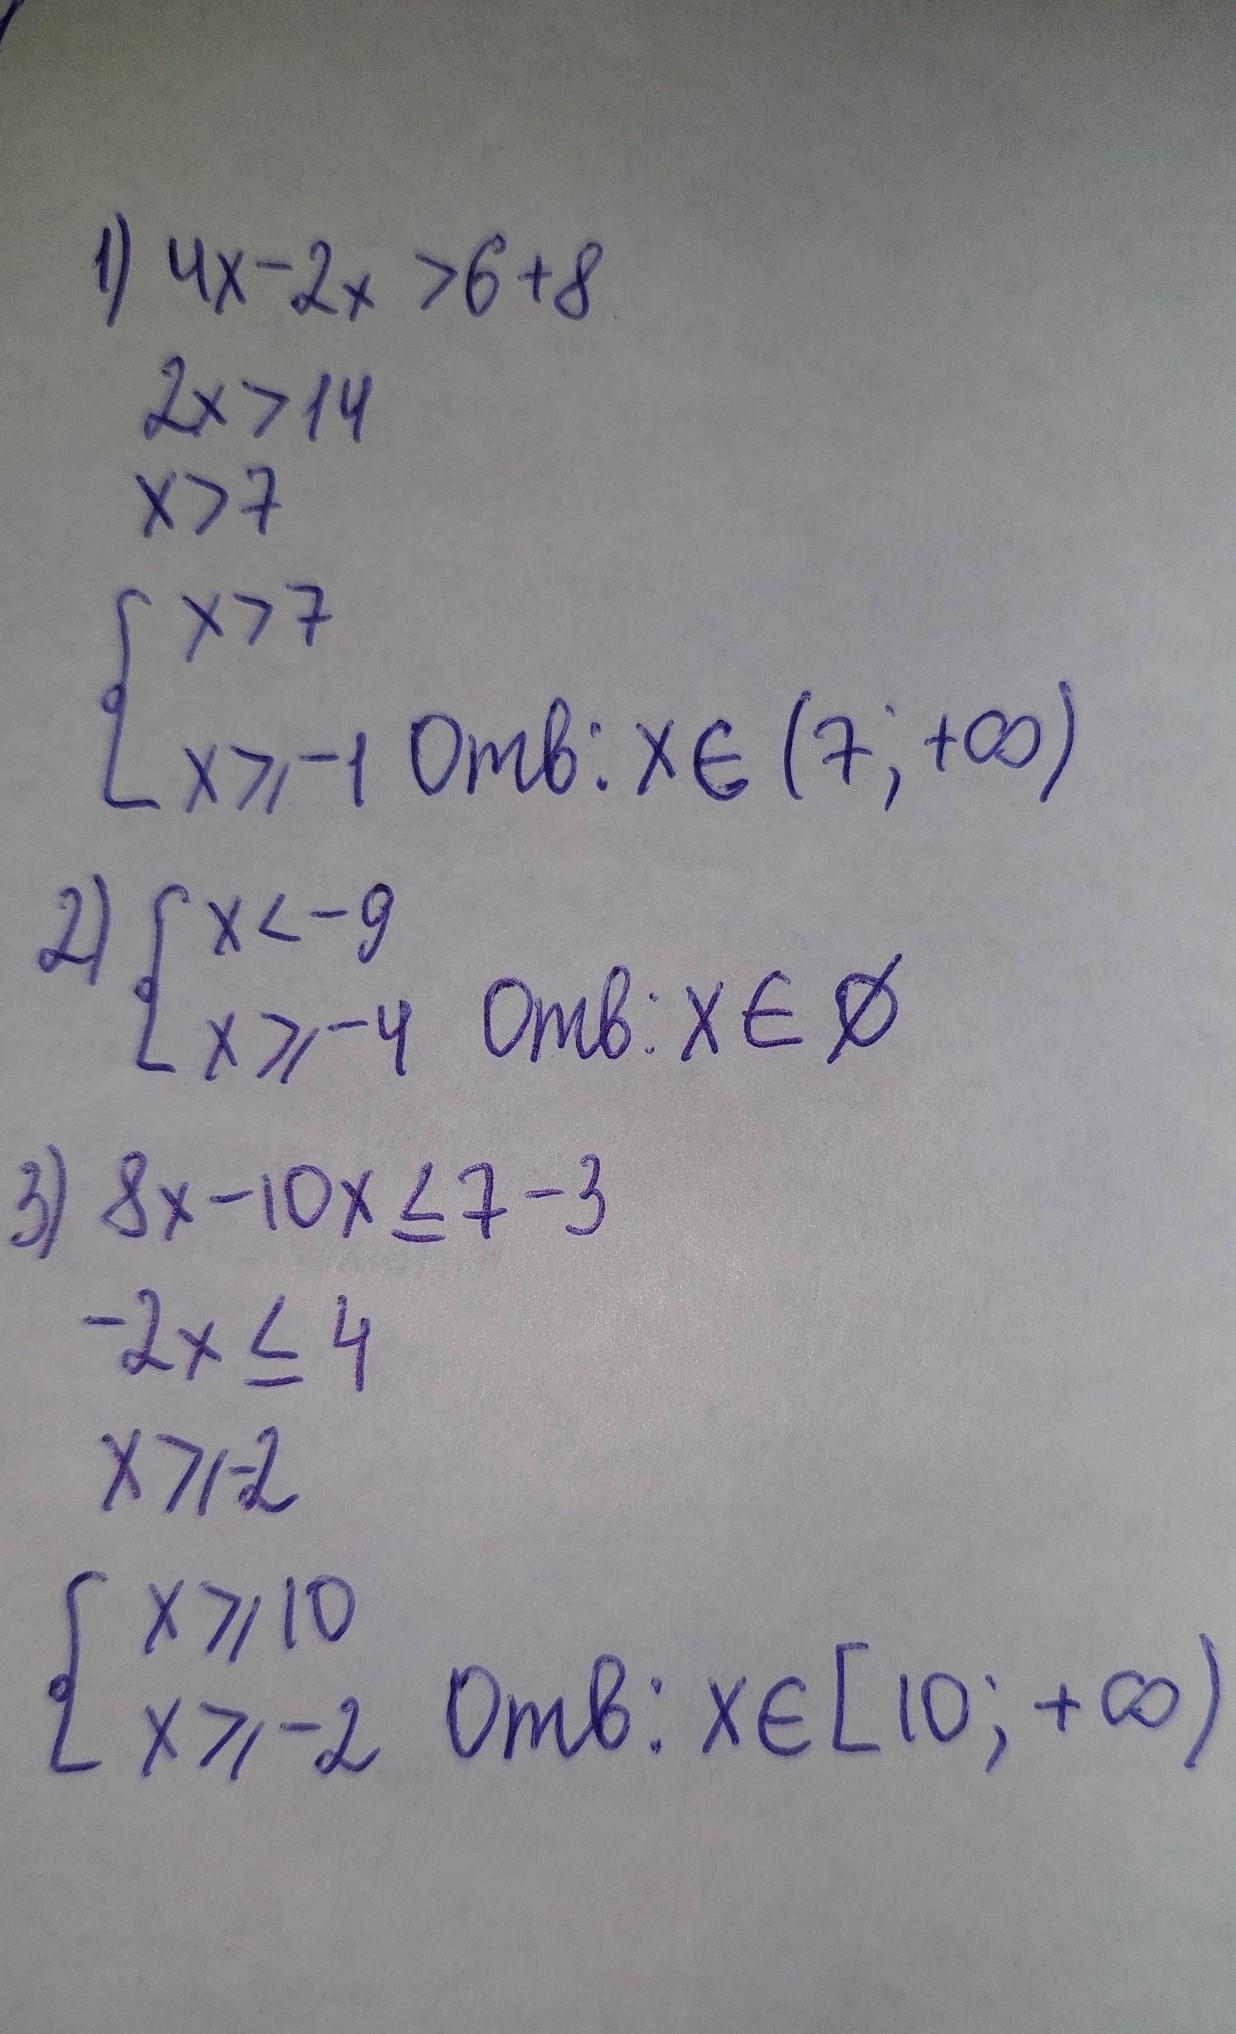 1) 4x-2x >6+8
2x>14
x>7
{ x>7
x⩾-1 Отв: x∈(7;+∞)
2) { x<-9
x⩾-4 Отв: x∈∅
3) 8x-10x≤7-3
-2x≤4
x⩾-2
{ x⩾10
x⩾-2 Отв: x∈[10;+∞)